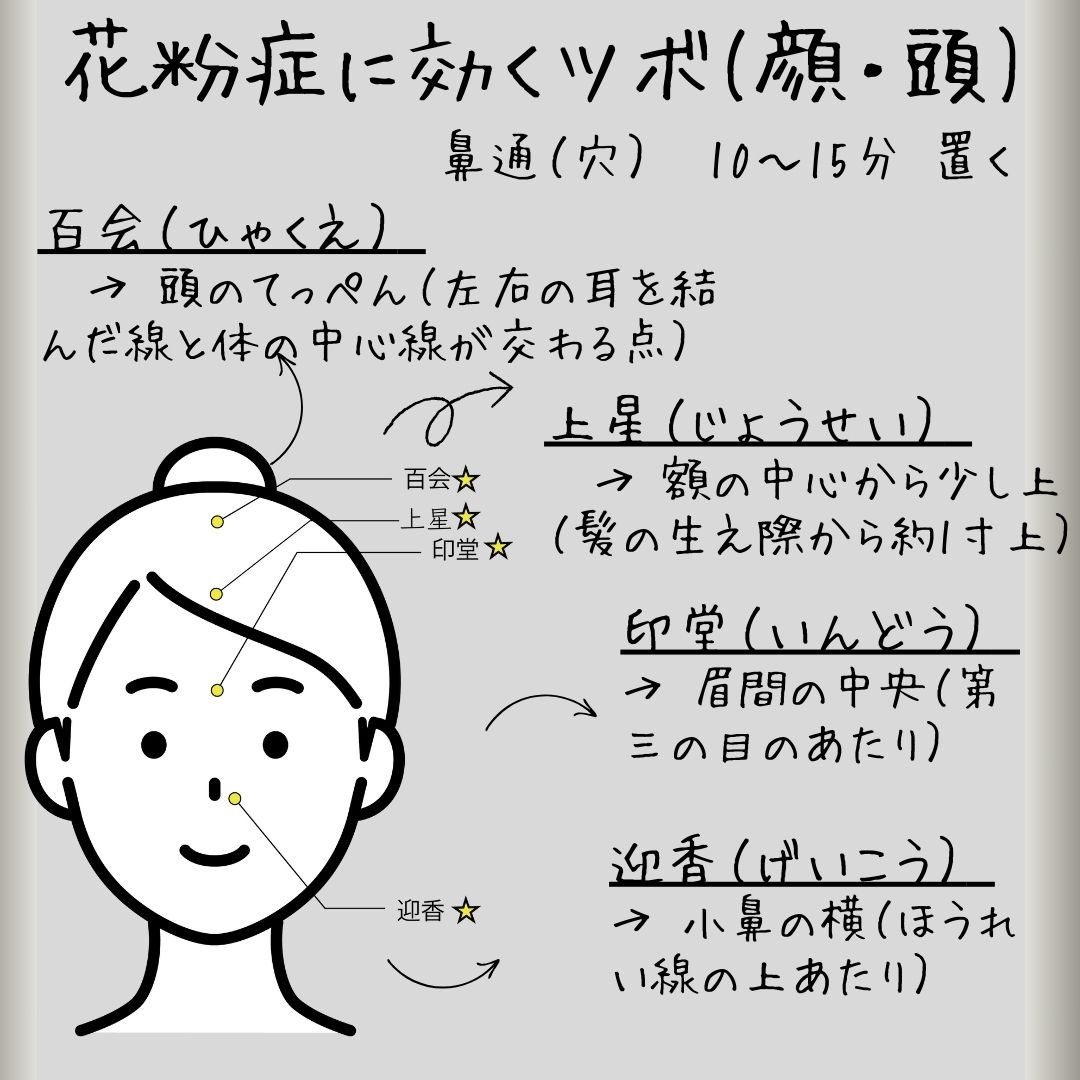 花粉症に効くツボ(顔・頭)
鼻通(穴) 10〜15分 置く
百会(ひゃくえ)
→ 頭のてっぺん(左右の耳を結
んだ線と体の中心線が交わる点)
上星(じょうせい)
→ 額の中心から少し上
(髪の生え際から約1寸上)
百会
上星
印堂
印堂(いんどう)
→ 眉間の中央(第
三の目のあたり)
迎香(げいこう)
→ 小鼻の横(ほうれ
い線の上あたり)
迎香